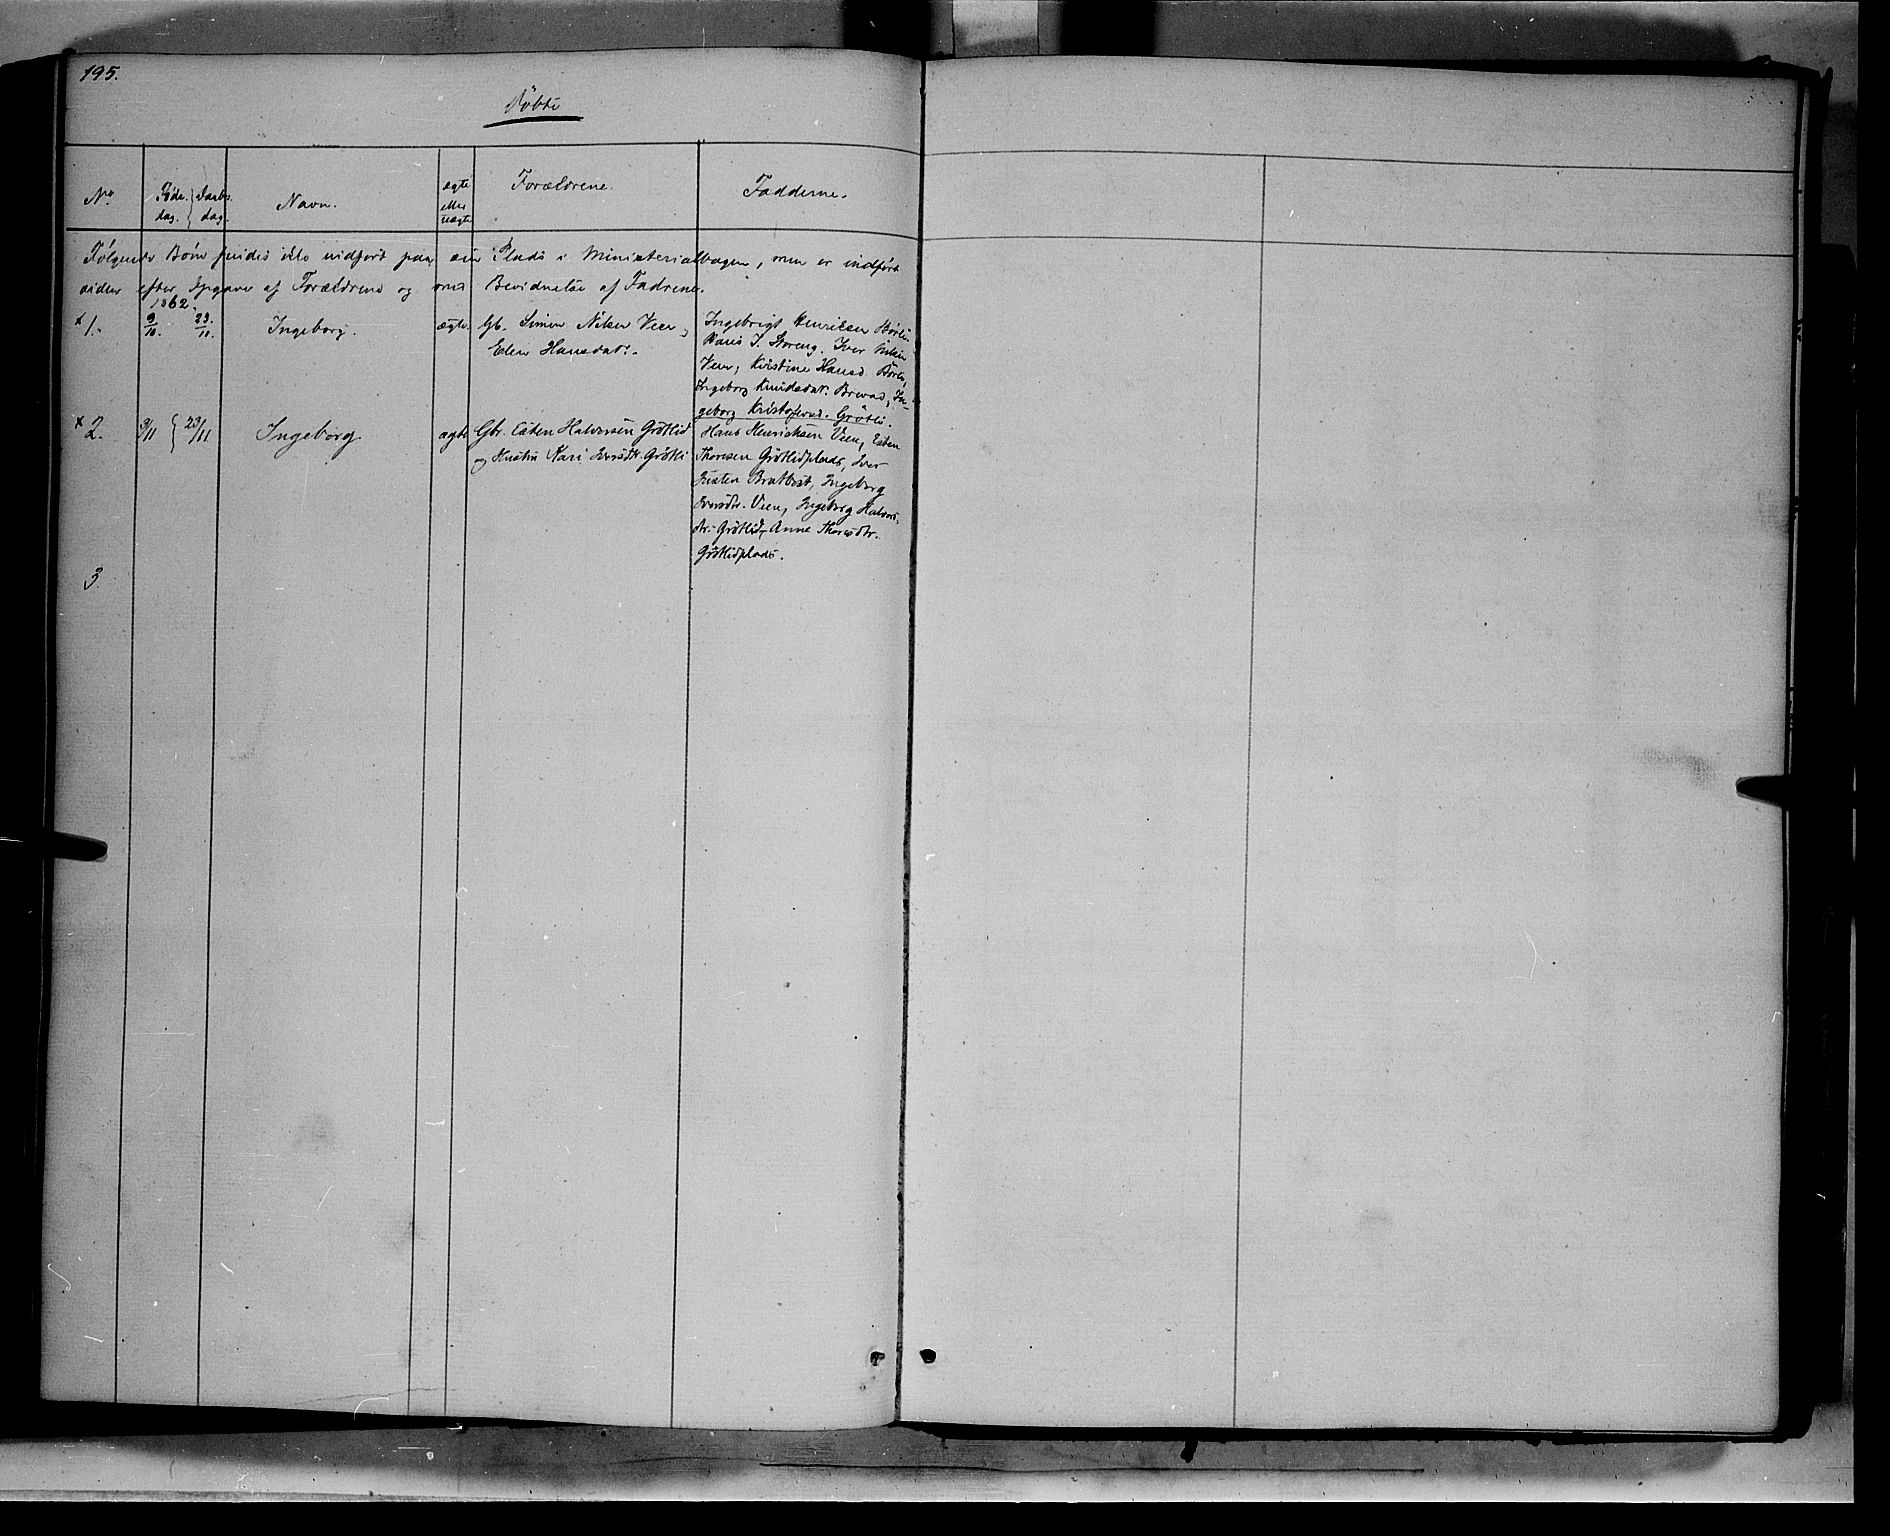 195.
Døbte
No
Føde-
dag.
Daabs
dag.
Navn.
ægte
eller
uægte
Forældrene.
Fadderne.
Følgende Børn findes ikke indført paa sin Plads i Ministerialbogen, men er indført
siden efter Opgave af Forældrene og med Bevidnelse af Fadrene.
1862.
x 1. 9/10. 23/11. Ingeborg. ægte. Gb. Simen Nilsen Veen og
Elen Hansdatr.
Ingebrigt Henriksen Børli
Maris J. Storeng. Iver
Veen, Kristine Hansd. Børli,
Ingeborg Knudsdat. In-
geborg Kristofersd. Grøtli.
x 2. 3/11 23/11 Ingeborg ægte Gbr. Esten Halvorsen Grøtlid
og Hustru Kari Iversdtr. Grøtli
Hans Henricksen Veen, Esten
Thoresen Grøtlidplads, Iver
Justen Bratbost, Ingeborg
Iversdtr. Veen, Ingeborg Halvors-
dtr. Grøtlid, Anne Thoresdtr.
Grøtlidplads.
3.